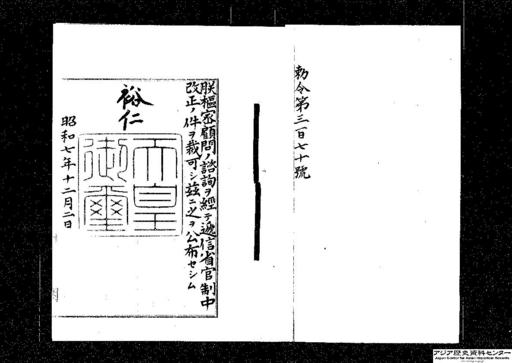 勅令第三百七十號
朕樞密顧問ノ諮詢ヲ經テ遞信省官制中
改正ノ件ヲ裁可シ茲ニ之ヲ公布セシム
裕仁
天皇
御璽
昭和七年十二月二日
アジア歴史資料センター
Japan Center for Asian Historical Records